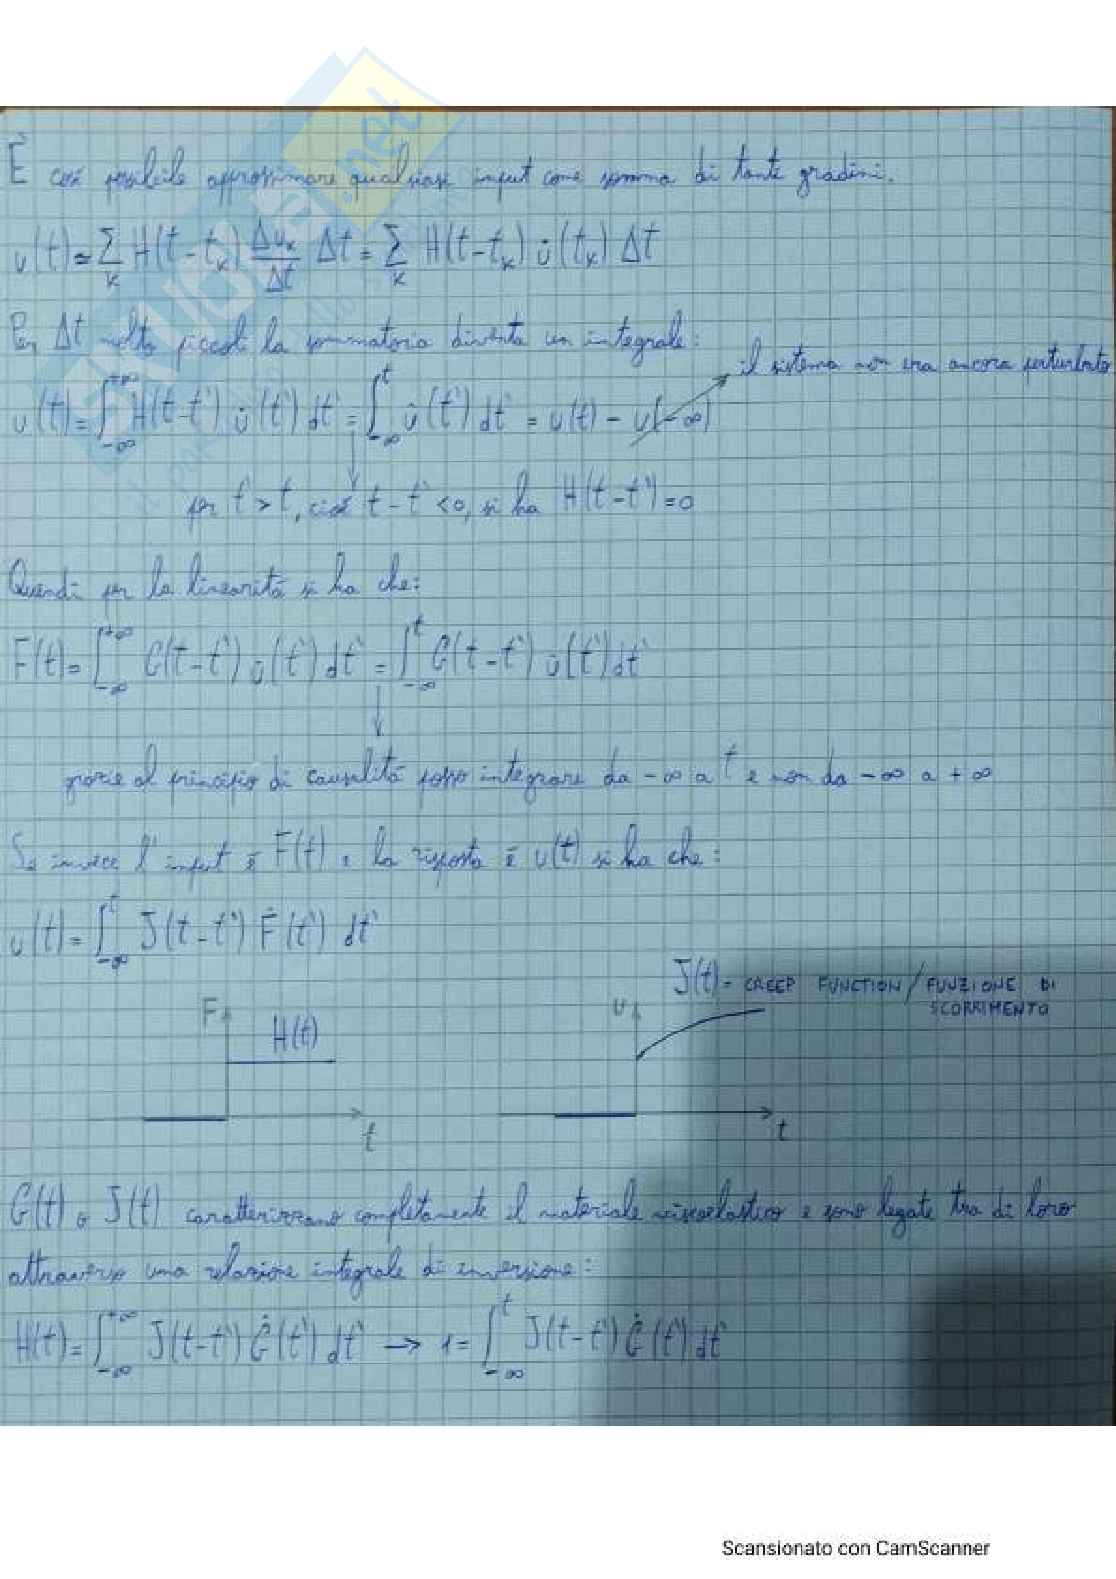 È così possibile approssimare qualsiasi input come somma di tanti gradini.
u(t) ≃ ∑_k H(t-t_k) Δu_k/Δt Δt = ∑_k H(t-t_k) u̇(t_k) Δt
Per Δt molto piccoli la sommatoria diventa un integrale:
il sistema non era ancora perturbato
u(t) = ∫_{-∞}^{+∞} H(t-t') u̇(t') dt' = ∫_{-∞}^{t} u̇(t') dt' = u(t) - u(-∞)
per t' > t, cioè t-t' <0, si ha H(t-t')=0
Quindi per la linearità si ha che:
F(t) = ∫_{-∞}^{+∞} G(t-t') u̇(t') dt' = ∫_{-∞}^{t} G(t-t') u̇(t') dt'
grazie al principio di causalità posso integrare da -∞ a t e non da -∞ a +∞
Se invece l'input è F(t) e la risposta è u(t) si ha che:
u(t) = ∫_{-∞}^{t} J(t-t') Ḟ(t') dt'
J(t) = CREEP FUNCTION / FUNZIONE DI
SCORRIMENTO
F
H(t)
t
u
t
G(t) o J(t) caratterizzano completamente il materiale viscoelastico e sono legate tra di loro
attraverso una relazione integrale di inversione:
H(t) = ∫_{-∞}^{+∞} J(t-t') Ġ(t') dt' → 1 = ∫_{-∞}^{t} J(t-t') Ġ(t') dt'
Scansionato con CamScanner